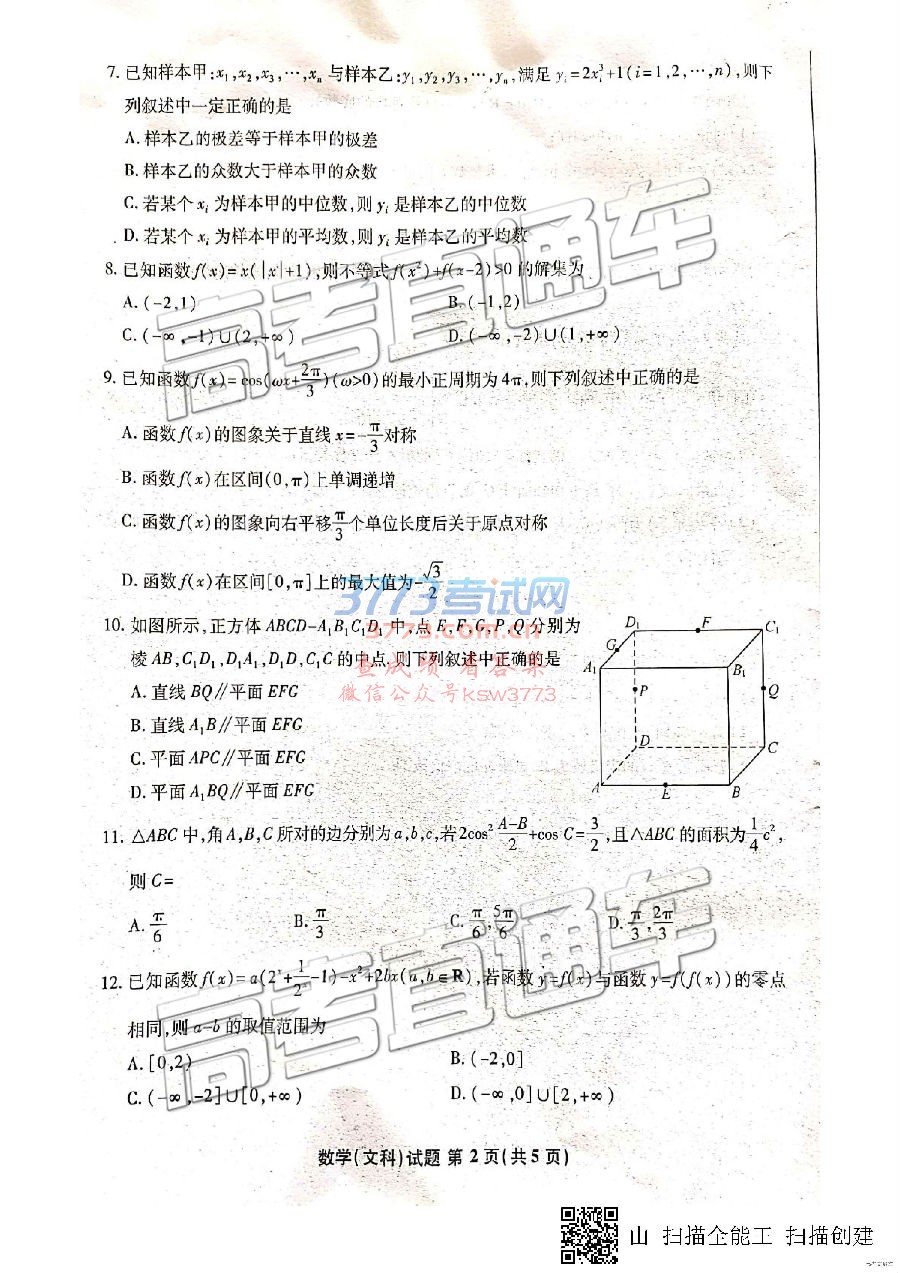 7. 已知样本甲:x₁,x₂,x₃,…,xₙ与样本乙:y₁,y₂,y₃,…,yₙ,满足yᵢ=2xᵢ³+1(i=1,2,…,n),则下
列叙述中一定正确的是
A. 样本乙的极差等于样本甲的极差
B. 样本乙的众数大于样本甲的众数
C. 若某个xᵢ为样本甲的中位数,则yᵢ是样本乙的中位数
D. 若某个xᵢ为样本甲的平均数,则yᵢ是样本乙的平均数
8. 已知函数f(x)=x(|x|+1),则不等式f(x²)+f(x-2)>0的解集为
A. (-2,1) B. (-1,2)
C. (-∞,-1)∪(2,+∞) D. (-∞,-2)∪(1,+∞)
9. 已知函数f(x)=cos(ωx+2π/3)(ω>0)的最小正周期为4π,则下列叙述中正确的是
A. 函数f(x)的图象关于直线x=-π/3对称
B. 函数f(x)在区间(0,π)上单调递增
C. 函数f(x)的图象向右平移π/3个单位长度后关于原点对称
D. 函数f(x)在区间[0,π]上的最大值为-√3/2
10. 如图所示,正方体ABCD-A₁B₁C₁D₁中,点E,F,G,P,Q分别为
棱AB,C₁D₁,D₁A₁,D₁D,C₁C的中点.则下列叙述中正确的是
A. 直线BQ∥平面EFG
B. 直线A₁B∥平面EFG
C. 平面APC∥平面EFG
D. 平面A₁BQ∥平面EFG
D₁ F C₁
G
A₁ B₁
P Q
D C
A E B
11. △ABC中,角A,B,C所对的边分别为a,b,c,若2cos²(A-B)/2+cos C=3/2,且△ABC的面积为1/4c²,
则C=
A. π/6 B. π/3 C. π/6,5π/6 D. π/3,2π/3
12. 已知函数f(x)=a(2ˣ+1/2ˣ-1)-x²+2bx(a,b∈R),若函数y=f(x)与函数y=f(f(x))的零点
相同,则a-b的取值范围为
A. [0,2) B. (-2,0]
C. (-∞,-2]∪[0,+∞) D. (-∞,0]∪[2,+∞)
数学(文科)试题 第2页(共5页)
高考直通车
高考直通车
3773考试网
3773.com.cn
查成绩 看答案
微信公众号ksw3773
山 扫描全能工 扫描创建